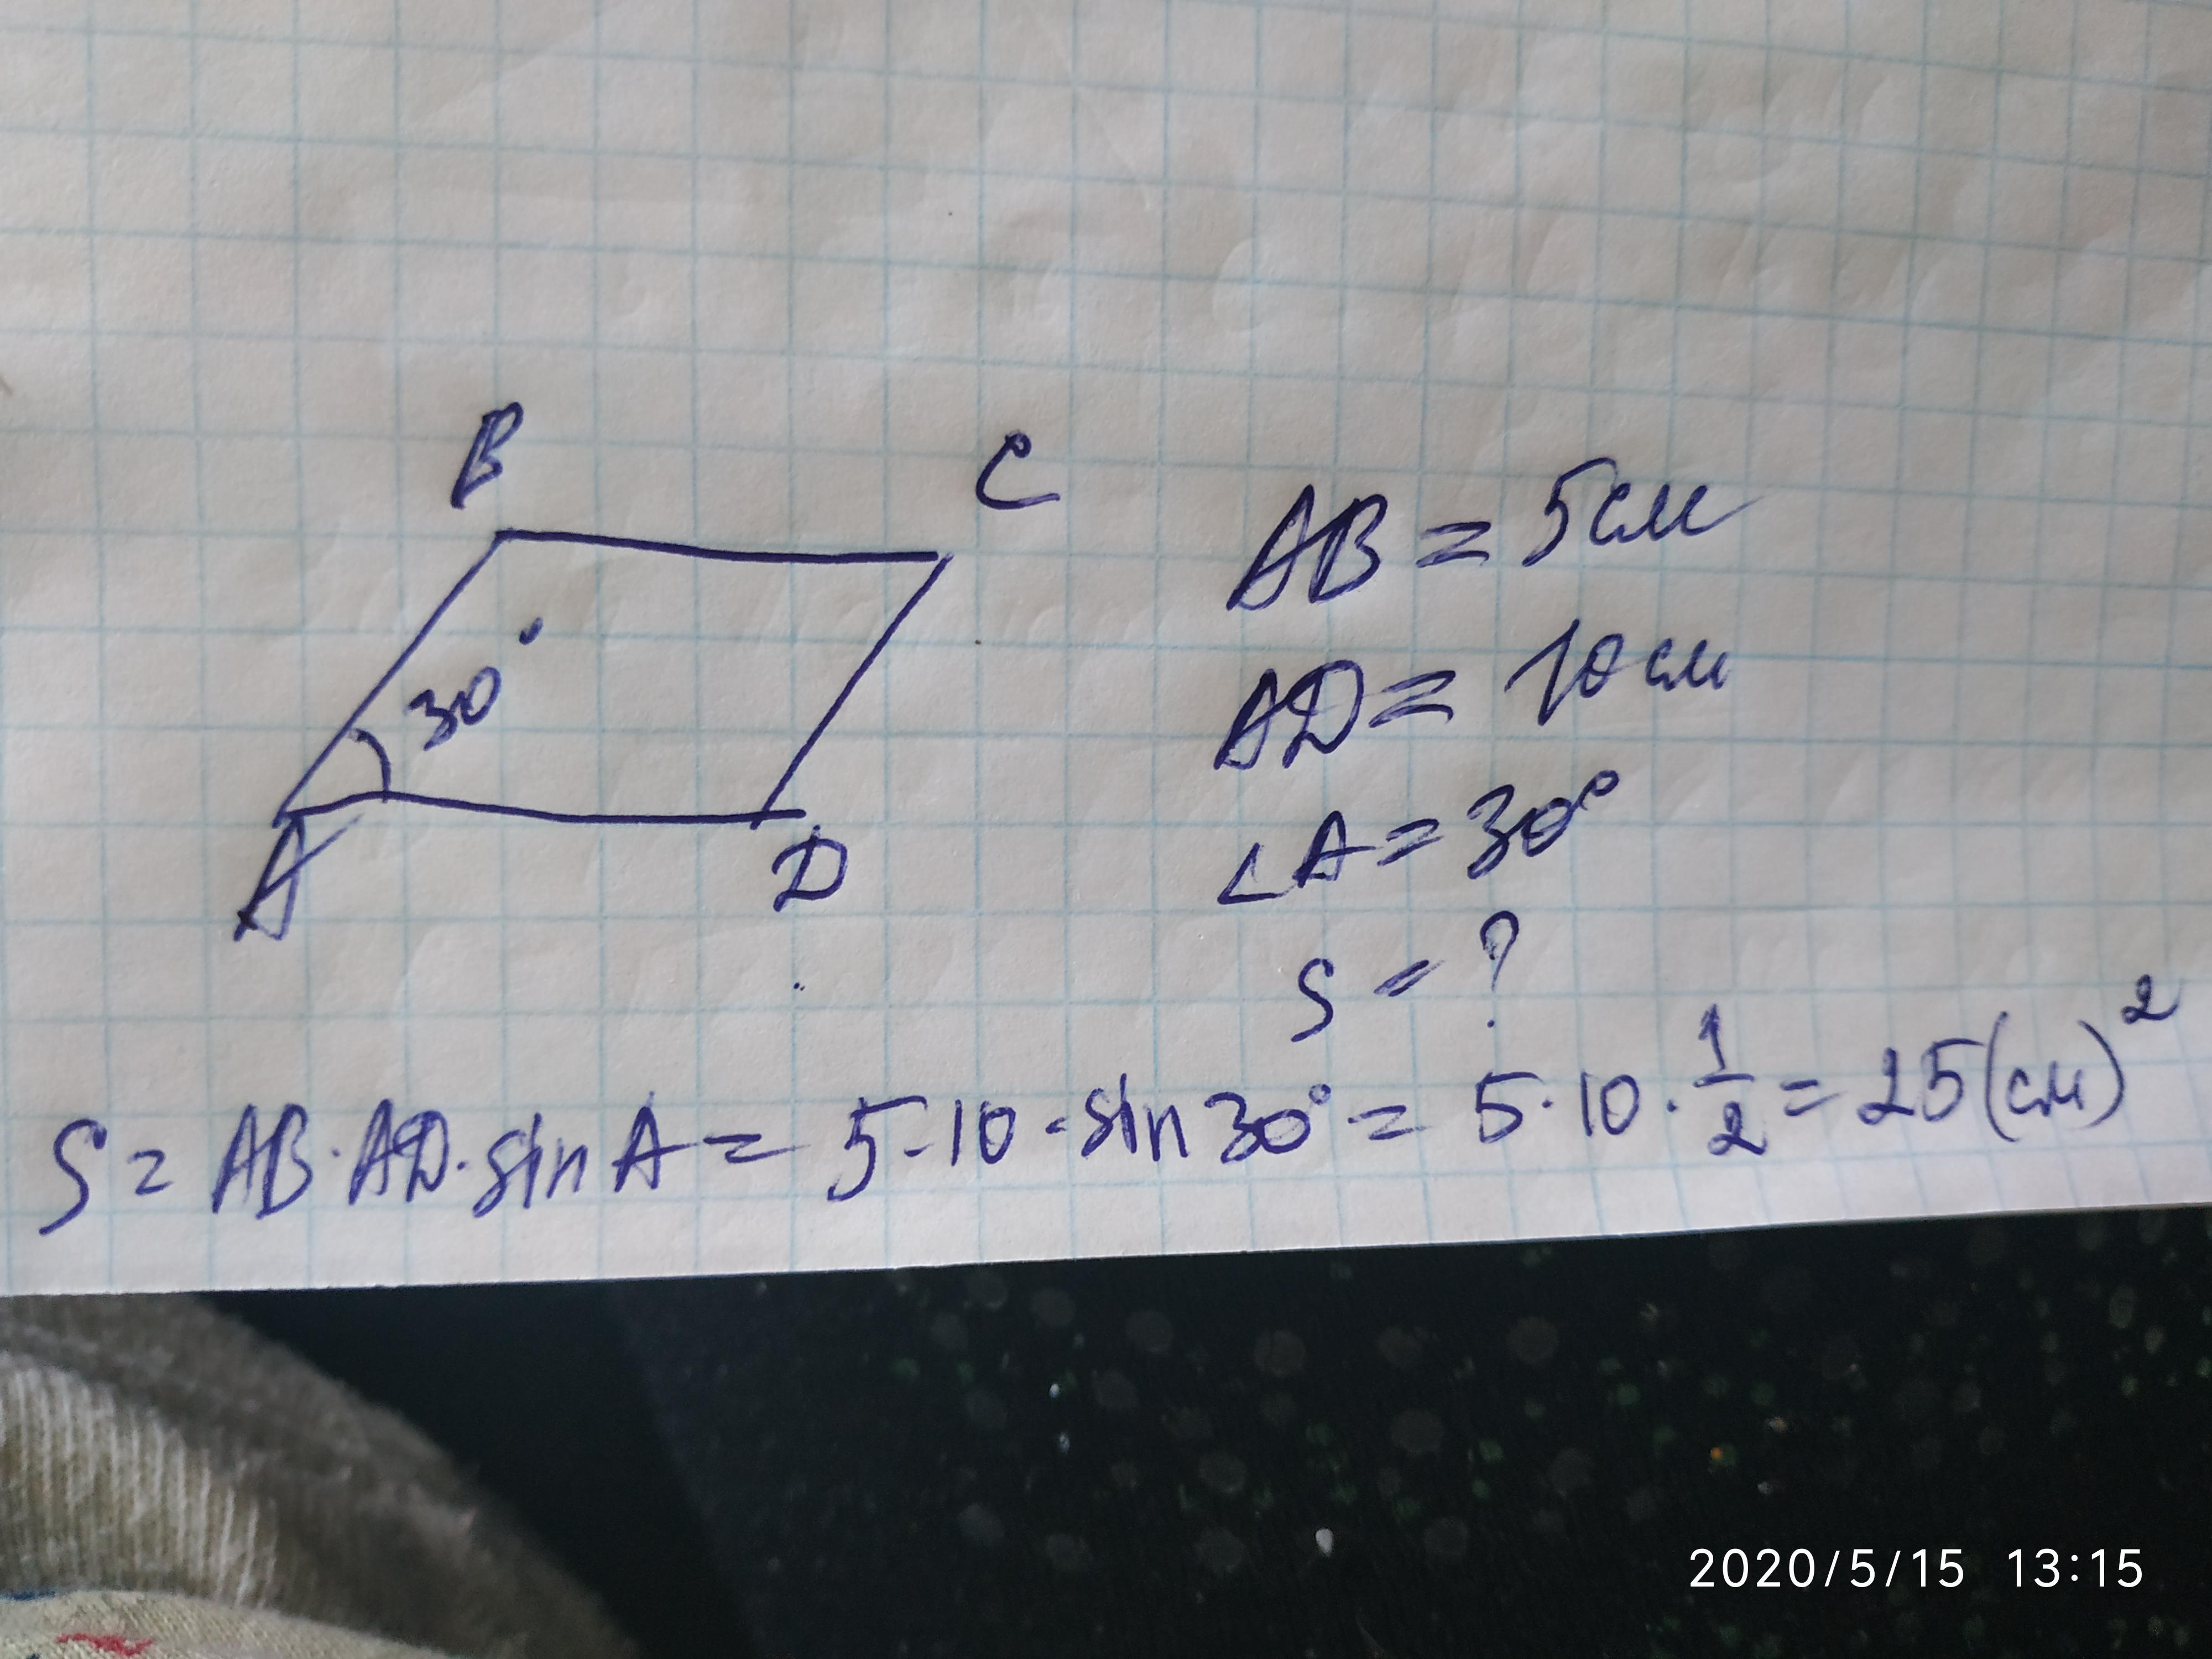 B
C
30°
A
D
AB = 5см
AD = 10см
∠A = 30°
S = ?
S = AB·AD·sin A = 5·10·sin 30° = 5·10·1/2 = 25(см)²
2020/5/15 13:15